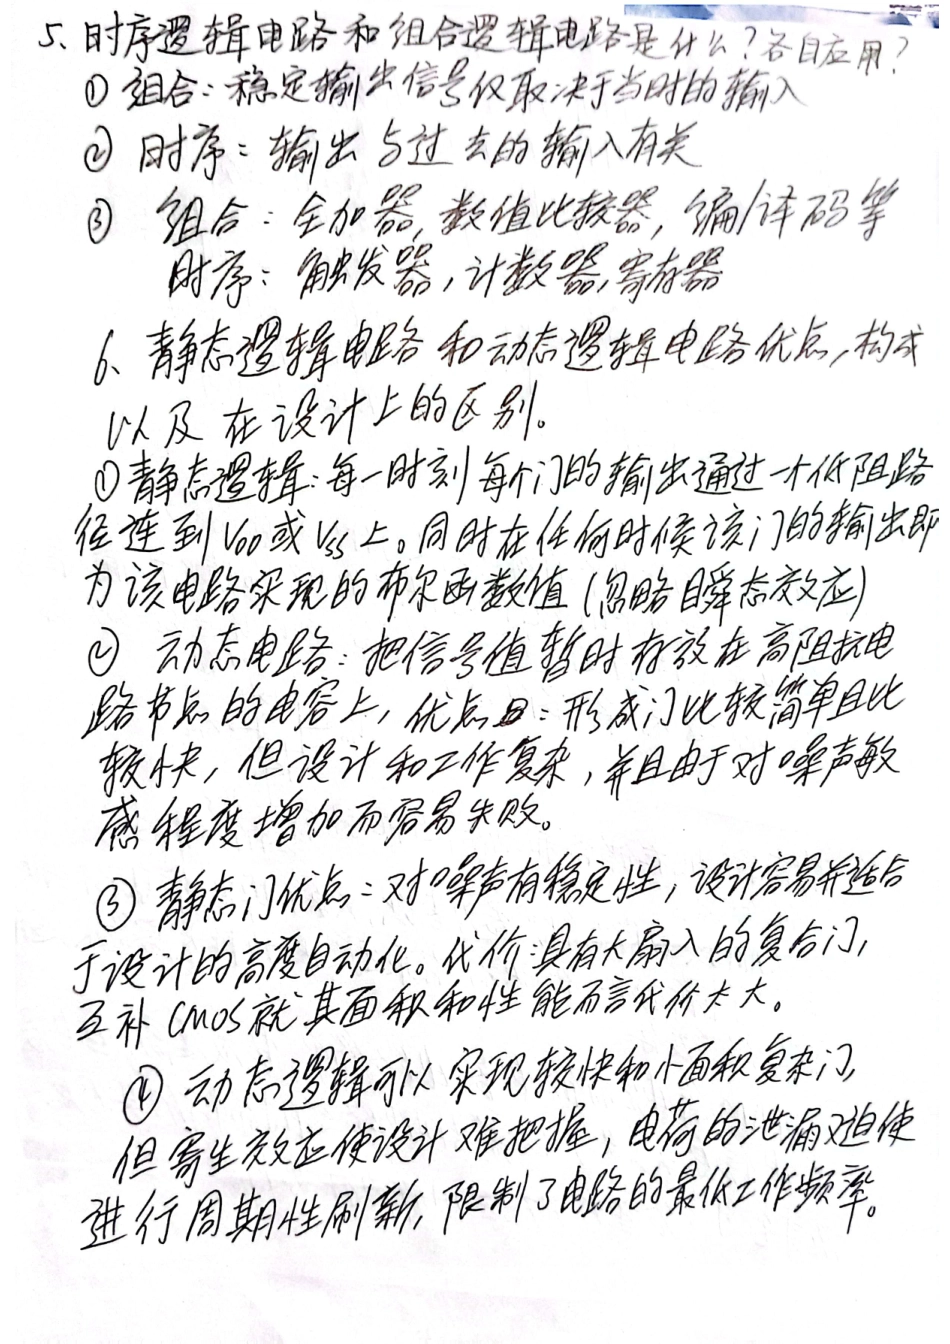 5、时序逻辑电路和组合逻辑电路是什么?各自应用?
① 组合:稳定输出信号仅取决于当时的输入
② 时序:输出与过去的输入有关
③ 组合:全加器,数值比较器,编/译码等
时序:触发器,计数器,寄存器
6、静态逻辑电路和动态逻辑电路优点,构成
以及在设计上的区别。
①静态逻辑:每一时刻每个门的输出通过一个低阻路
径连到VDD或VSS上。同时在任何时候该门的输出即
为该电路实现的布尔函数值(忽略瞬态效应)
② 动态电路:把信号值暂时存放在高阻抗电
路节点的电容上,优点:形成门比较简单且比
较快,但设计和工作复杂,并且由于对噪声敏
感程度增加而容易失败。
③ 静态门优点:对噪声有稳定性,设计容易并适合
于设计的高度自动化。代价:具有大扇入的复合门,
互补CMOS就其面积和性能而言代价太大。
④ 动态逻辑可以实现较快和小面积复杂门,
但寄生效应使设计难把握,电荷的泄漏迫使
进行周期性刷新,限制了电路的最低工作频率。